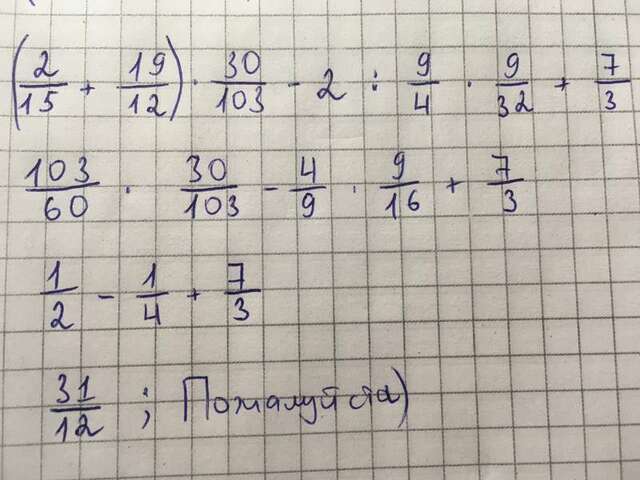 (2/15 + 19/12) · 30/103 - 2 : 9/4 · 9/32 + 7/3
103/60 · 30/103 - 4/9 · 9/16 + 7/3
1/2 - 1/4 + 7/3
31/12 ; Пожалуйста)